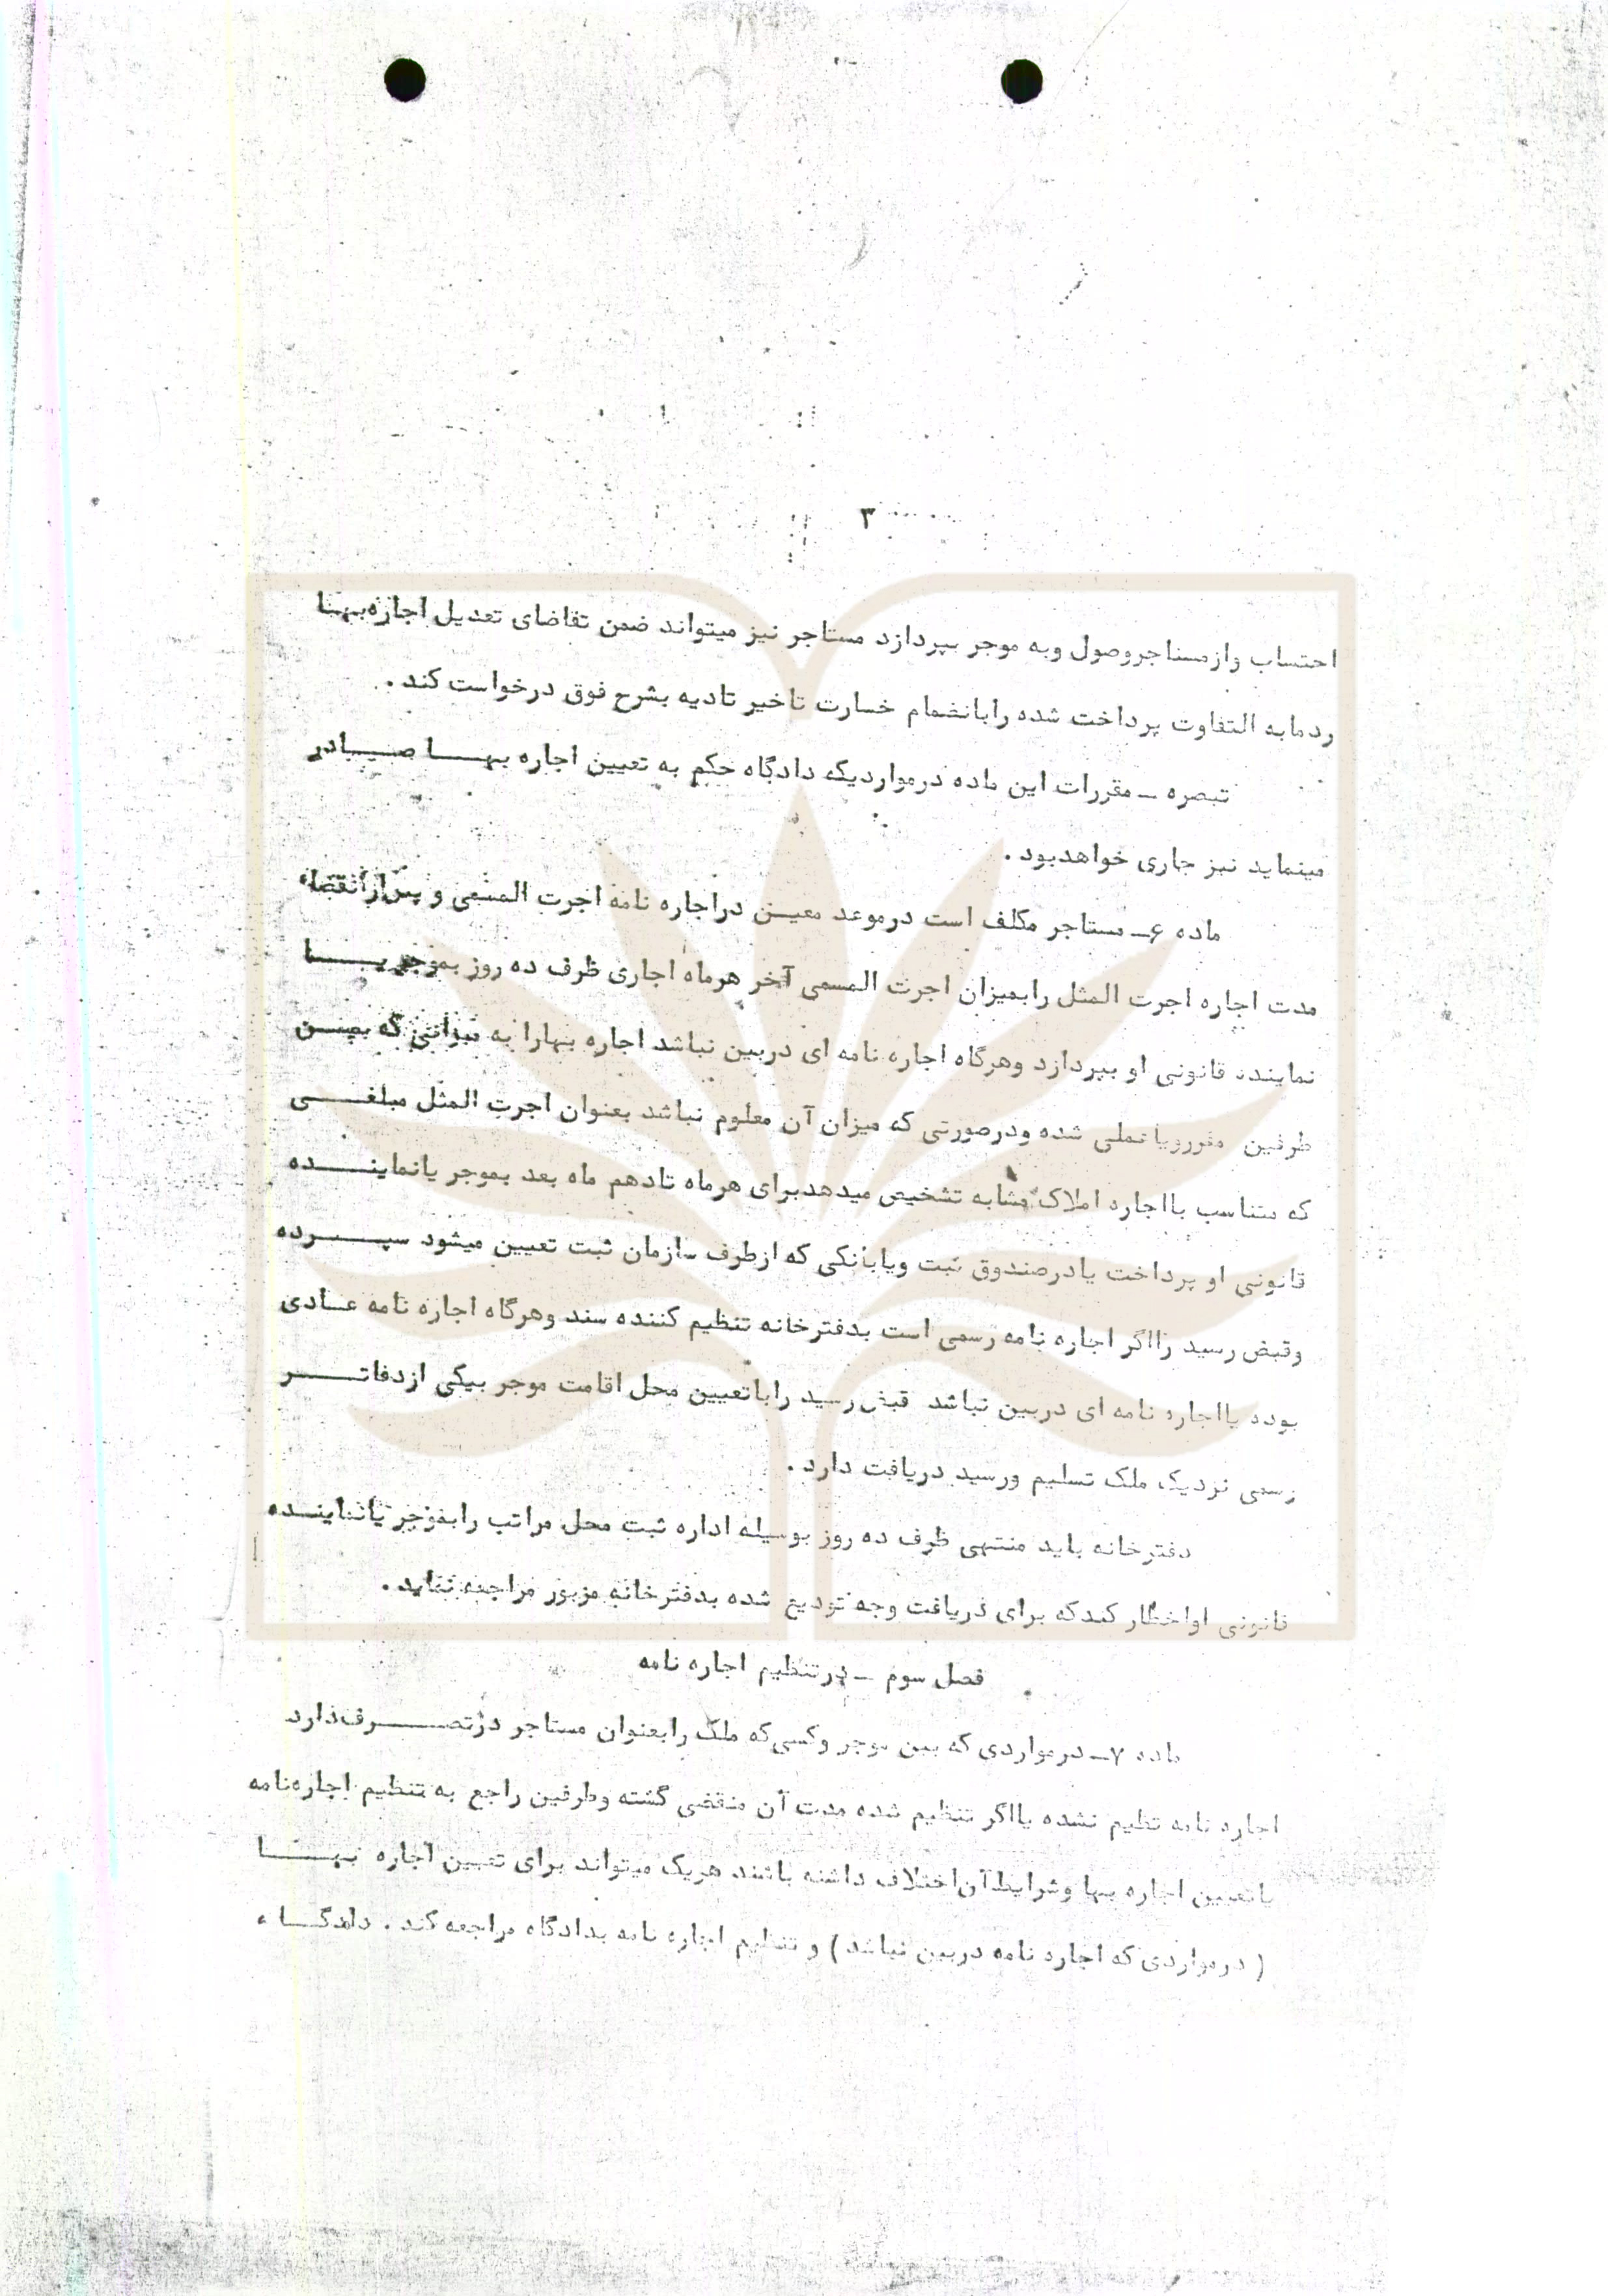 ۳
احتساب وازمستاجروصول وبه موجر بپردازد مستاجر نیز میتواند ضمن تقاضای تعدیل اجازه‌بهـا
ردمابه التفاوت پرداخت شده رابانضمام خسارت تاخیر تادیه بشرح فوق درخواست کند .
تبصره ــ مقررات این ماده درمواردیکه دادگاه حکم به تعیین اجاره بهــــا صــــادر
مینماید نیز جاری خواهدبود .
ماده ۶ــ مستاجر مکلف است درموعد معیــن دراجاره نامه اجرت المسمی و پس‌ازانقضاء
مدت اجاره اجرت المثل رابمیزان اجرت المسمی آخر هرماه اجاری ظرف ده روز بموجر یــــا
نماینده قانونی او بپردازد وهرگاه اجاره نامه ای دربین نباشد اجاره بهارا به میزانی که بیــــن
طرفین مقررویا عملی شده ودرصورتی که میزان آن معلوم نباشد بعنوان اجرت المثل مبلغــــی
که متناسب بااجاره املاک مشابه تشخیص میدهدبرای هرماه تادهم ماه بعد بموجر یانماینــــده
قانونی او پرداخت یادرصندوق ثبت ویابانکی که ازطرف سازمان ثبت تعیین میشود سپــــرده
وقبض رسید رااگر اجاره نامه رسمی است بدفترخانه تنظیم کننده سند وهرگاه اجاره نامه عــادی
بوده یااجاره نامه ای دربین نباشد قبض رسید راباتعیین محل اقامت موجر بیکی ازدفاتــــر
رسمی نزدیک ملک تسلیم ورسید دریافت دارد .
دفترخانه باید منتهی ظرف ده روز بوسیله اداره ثبت محل مراتب رابموجر یانماینــده
قانونی اواخطار کندکه برای دریافت وجه تودیع شده بدفترخانه مزبور مراجعه نماید .
فصل سوم ــ درتنظیم اجاره نامه
ماده ۷ــ درمواردی که بین موجر وکسی‌که ملک رابعنوان مستاجر درتصــــرف‌دارد
اجاره نامه تنظیم نشده یااگر تنظیم شده مدت آن منقضی گشته وطرفین راجع به تنظیم اجاره‌نامه
یاتعیین اجاره بها وشرایط‌آن‌اختلاف داشته باشند هریک میتواند برای تعیین اجاره بهــــا
( درمواردی که اجاره نامه دربین نباشد ) و تنظیم اجاره نامه بدادگاه مراجعه کند . دادگــاه